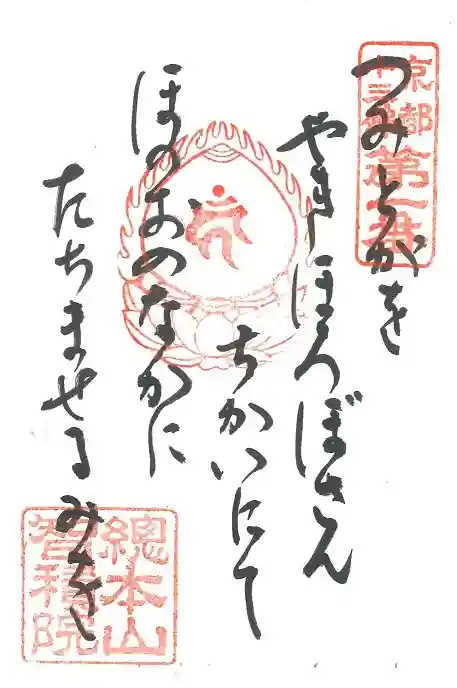 京都
十三佛
第一番
つみとがを
やきほろぼさん
ちかいにて
ほのおのなかに
たちませる
總本山
智積院